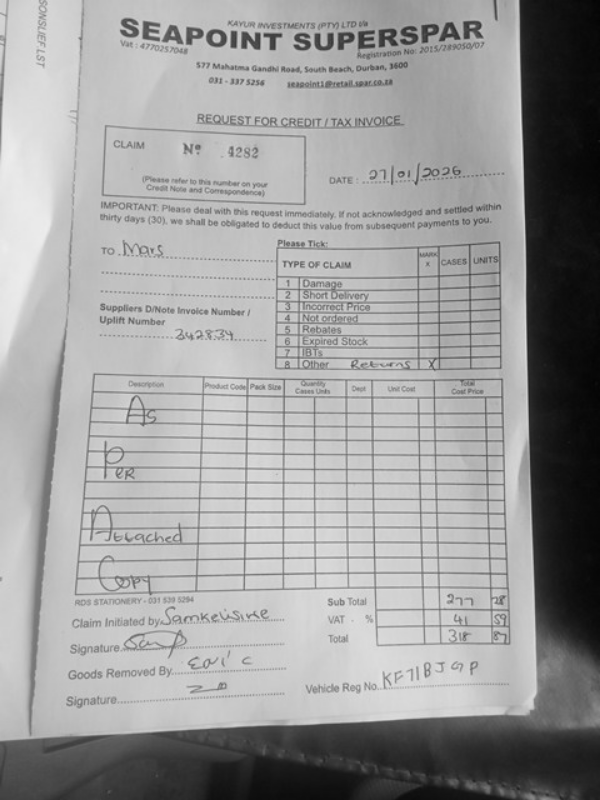 SONSLIEF LST
KAYUR INVESTMENTS (PTY) LTD t/a
SEAPOINT SUPERSPAR
Vat : 4770257048
Registration No: 2015/289050/07
577 Mahatma Gandhi Road, South Beach, Durban, 3600
031 - 337 5256 seapoint1@retail.spar.co.za
REQUEST FOR CREDIT / TAX INVOICE
CLAIM Nº 4282
(Please refer to this number on your
Credit Note and Correspondence)
DATE : 27/01/2026
IMPORTANT: Please deal with this request immediately. If not acknowledged and settled within
thirty days (30), we shall be obligated to deduct this value from subsequent payments to you.
TO Mars
Suppliers D/Note Invoice Number /
Uplift Number
342834
Please Tick:
TYPE OF CLAIM MARK X CASES UNITS
1 Damage
2 Short Delivery
3 Incorrect Price
4 Not ordered
5 Rebates
6 Expired Stock
7 IBTs
8 Other Returns X
Description Product Code Pack Size Quantity Cases Units Dept Unit Cost Total Cost Price
As
Per
Attached
Copy
RDS STATIONERY - 031 539 5294
Sub Total 277 28
VAT % 41 59
Total 318 87
Claim Initiated by Samkelisiwe
Signature
Goods Removed By Eric
Signature
Vehicle Reg No. KF71BJGP